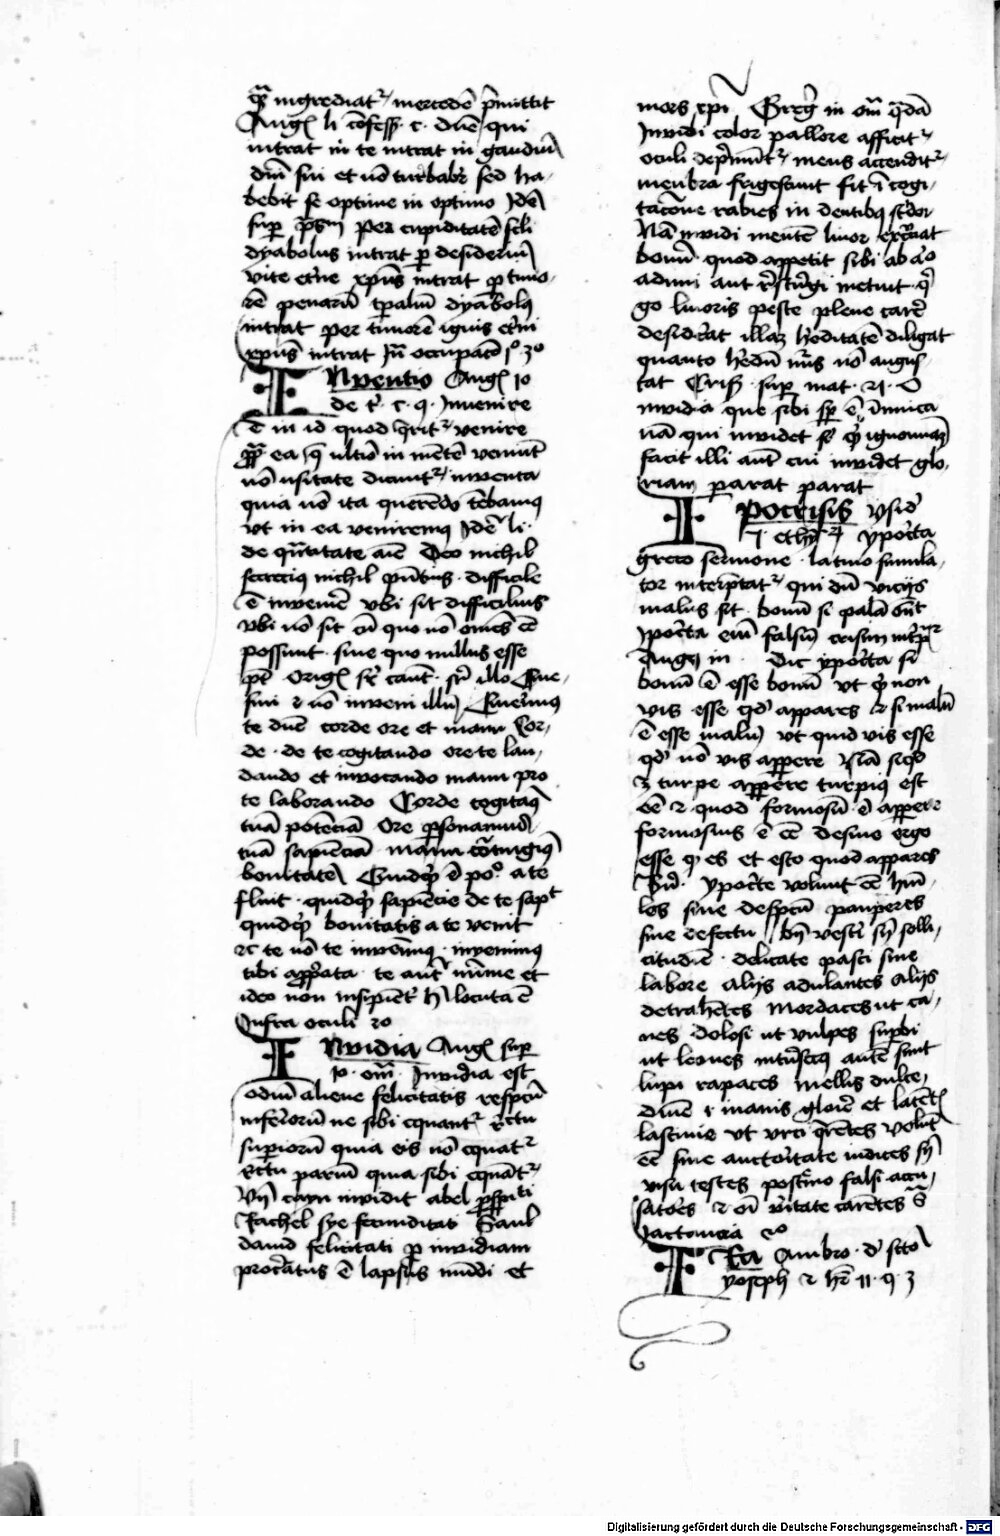 qr̄ ingrediat᷑ mercedē p̄mittit
Aug᷑ li cōfess. c. dn̄e qui
intrat in te intrat in gaudiū
dn̄i sui et nō turbabr̄ sed ha-
bebit se optime in optimo Jdē
sup̄ ps̄m Per cupiditatē scl̄i
dyabolus intrat p desideriū
vite et̄ne xpūs intrat p timo-
rē penarū tp̄aliū dyabolꝰ
intrat per timorē ignis et̄ni
xpūs intrat Jn̄ occupacō
INventio Aug᷑ 10
de t'. c. 9. Jnvenire
ē in id quod q̄rit᷑ venire
ea q̄ ultro in mētē veniūt
nō usitate dicunt᷑ inventa
quia nō ita querēdo tēbamꝰ
vt in ea veniremꝰ Jdē li.
de q̄titate aīe Deo nichil
secrecius nichil pn̄tius. difficile
ē invenīe vbi sit difficilius
vbi nō sit cū quo nō om̄es ēe
possunt. sine quo nullus esse
pt̄ Orig᷑ sr̄ cant̄. sn̄ illo Que-
sivi ⁊ nō inveni illū Querimꝰ
te dn̄e corde ore et manu Cor-
de. de te cogitando ore te lau-
dando et invocando manu pro
te laborando Corde cogitaꝰ
tuā potēciā Ore psonamus
tuā sapiēciā manu cōtingiꝰ
bonitatē Quidq̄ ē po. a te
fluit. quidq̄ sapiēcie de te sapt
quidq̄ bonitatis a te venit
te nō te invēimꝰ. invenimus
tibi te aut̄ mīme et
ideo non insipiēt' locuta ē
Jnfra oculi 20
INvidia Aug᷑ sup
10. om̄. Jnvidia est
odiū aliene felicitatis respc̄u
inferiorū ne sibi equant᷑ r̄ctu
supiorū quia eis nō equat᷑
r̄ctu pariū quia sibi equāt᷑
Vn̄ cayn invidit abel pspitati
Rachel lye fecunditati Saul
david felicitati p invidiam
procr̄atus ē lapsus mūdi et
mors xpi Greg᷑ in om̄ q̄dā
Jnvidi color pallore afficit᷑
oculi dep̄mūt᷑ mens accendit᷑
menbra frigescunt fit ī cogi-
tacōne rabies in dentibꝰ st̄dor
Nā invidi mentē livor
bonū quod appetit sibi ab alio
adimi aut r̄stīgi metuit q̄
go livoris peste plene carē
desid̄at illaꝫ h̄editatē diligat
quanto h̄edū nūs nō angus-
tat Cris᷑. sup mat. 21.
invidia que sibi sp̄ ē īimica
nā qui invidet sꝫ q̄ ignomiā
facit illi aut̄ cui invidet glo-
riam parat parat
IPocrisis ysid'
7. ethȳ ypoc̄ta
greco sermone. latino simula-
tor interp̄tat᷑ qui dū vicijs
malus sit. bonū se palā on̄t
ypoc̄ta eiū falsū crisim int̄pr᷑
Aug᷑ in. Dic ypoc̄ta si
bonū ē esse bonū vt q̄ non
vis esse qd' appares ⁊ si malū
ē esse malū vt quid vis esse
qd' nō vis appere Nā si qd'
ē turpe appere turpius est
ēe ⁊ quod formosū ē appere
formosius ē ēe desine ergo
esse q' es et esto quod appares
Bn̄'. ypoc̄te volunt ēe hūi-
les sine despc̄u pauperes
sine defectu bn̄ vesti sn̄ solli-
citudīe. delicate pasci sine
labore alijs adulantes alijs
detrahētes mordaces ut ca-
nes dolosi ut vulpes supbi
ut leones intrinsecꝰ autē sunt
lupi rapaces mellis dulce-
dinē ⁊ inanis glorie et latēt
lascivie vt vrci q̄rētes volūt
ēe sine auctōritate iudices sn̄
visu testes postremo falsi accu-
satores ⁊ oī vitate carētes S
Jactancia
IRa Ambro. d' sco
yoseph ⁊ hr̄ 11. q. 3
Digitalisierung gefördert durch die Deutsche Forschungsgemeinschaft - DFG